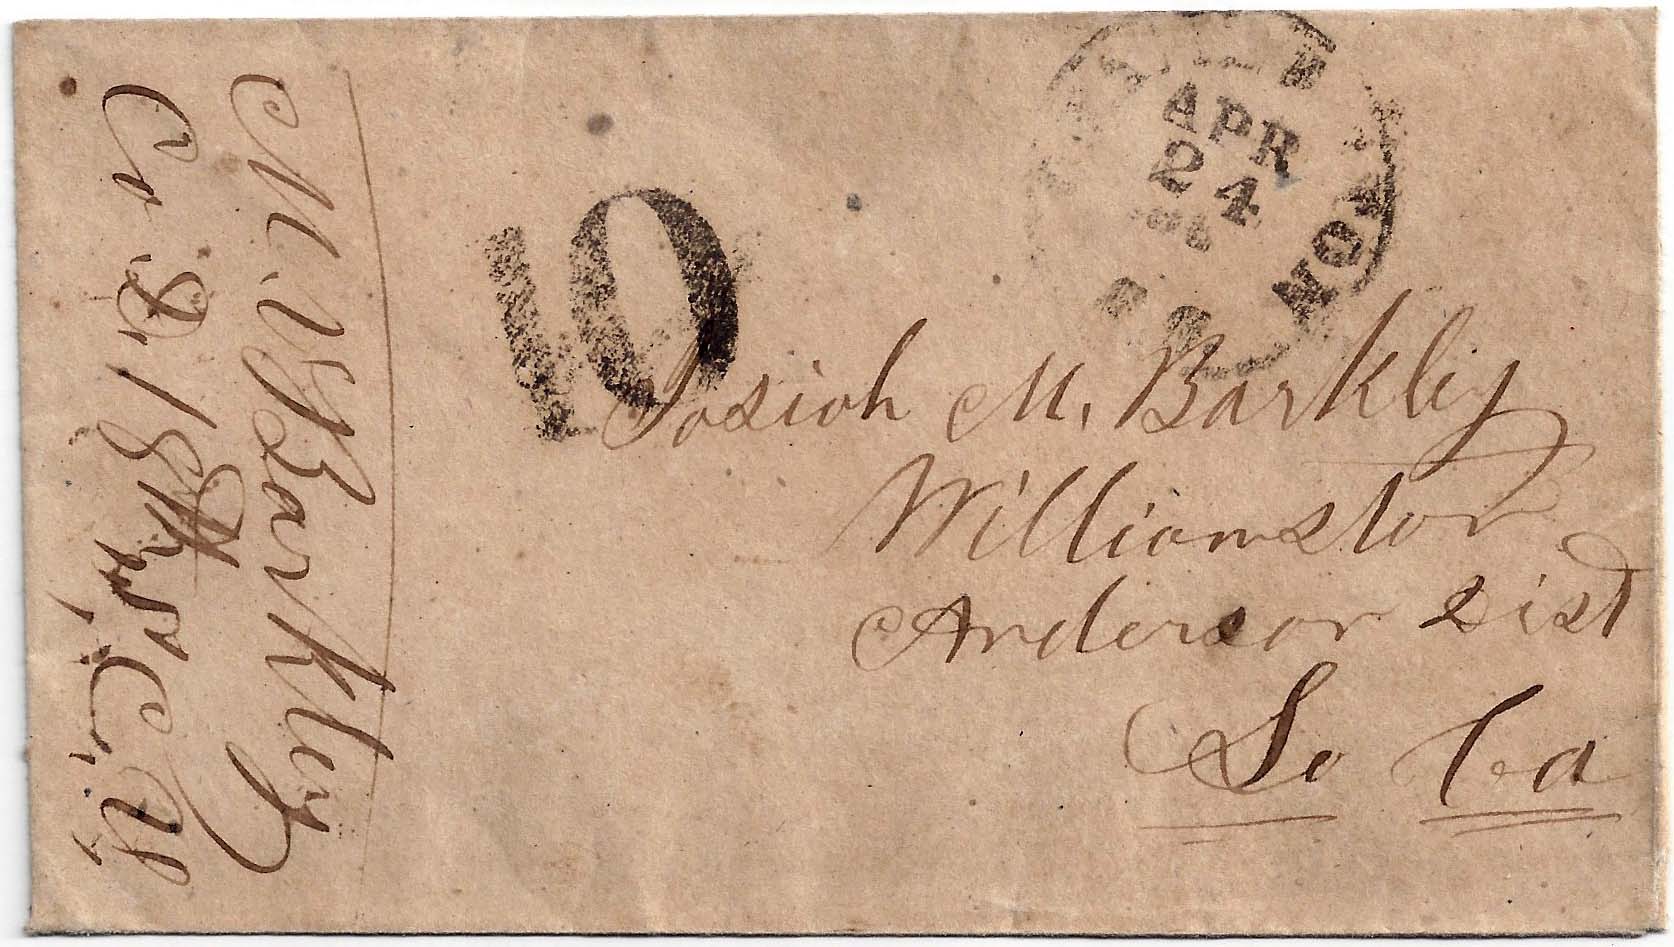 M. V. Barkley
Co. D. 18th S. C. V.
10
APR
24
Josiah M. Barkley
Williamston
Anderson Dist
So Ca